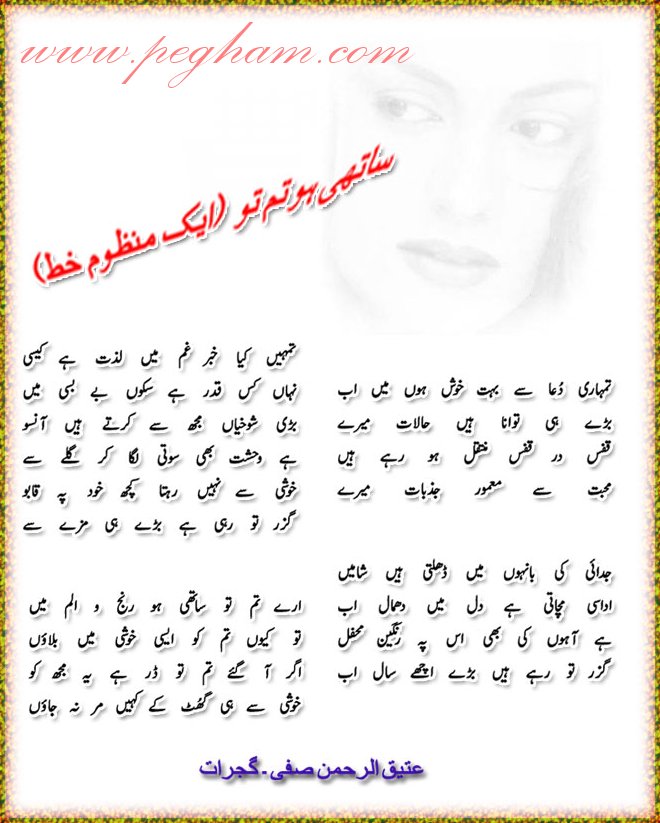 www.pegham.com
ساتھی ہو تم تو (ایک منظوم خط)
تمہاری دُعا سے بہت خوش ہوں میں اب
بڑے ہی توانا ہیں حالات میرے
قفس در قفس منتقل ہو رہے ہیں
محبت سے معمور جذبات میرے
جدائی کی بانہوں میں ڈھلتی ہیں شامیں
اداسی مچاتی ہے دل میں دھمال اب
ہے آہوں کی بھی اس پہ رنگین محفل
گزر تو رہے ہیں بڑے اچھے سال اب
تمہیں کیا خبر غم میں لذت ہے کیسی
نہاں کس قدر ہے سکوں بے بسی میں
بڑی شوخیاں مجھ سے کرتے ہیں آنسو
ہے وحشت بھی سوتی لگا کر گلے سے
خوشی سے نہیں رہتا کچھ خود پہ قابو
گزر تو رہی ہے بڑے ہی مزے سے
ارے تم تو ساتھی ہو رنج و الم میں
تو کیوں تم کو ایسی خوشی میں بلاؤں
اگر آ گئے تم تو ڈر ہے یہ مجھ کو
خوشی سے ہی گھُٹ کے کہیں مر نہ جاؤں
عتیق الرحمن صفی ۔ گجرات